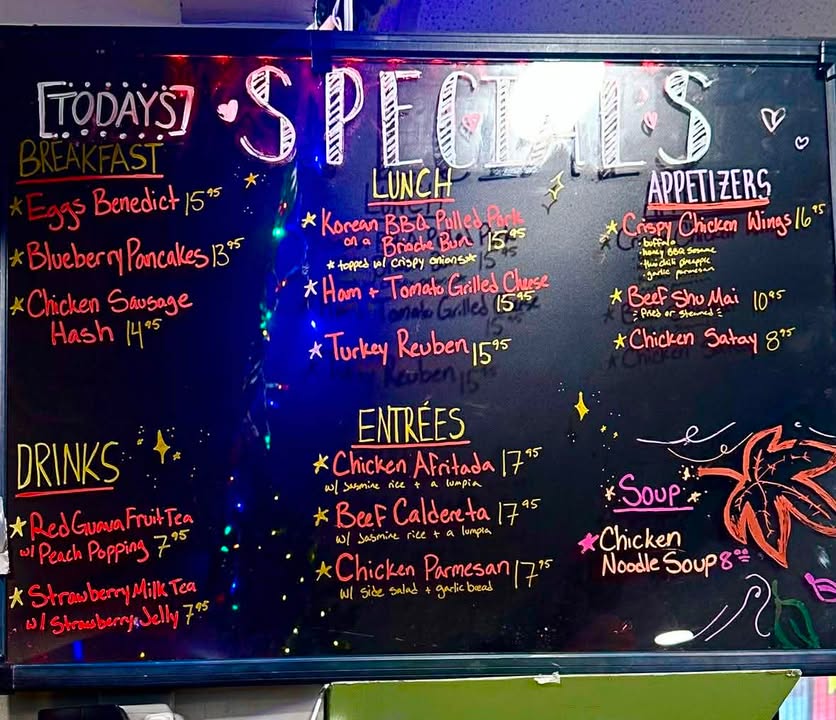 [TODAYS] SPECIALS
BREAKFAST
Eggs Benedict 15.95
Blueberry Pancakes 13.95
Chicken Sausage
Hash 14.95
LUNCH
Korean BBQ Pulled Pork
on a Brioche Bun 15.95
*topped w/ crispy onions*
Ham + Tomato Grilled Cheese
15.95
Turkey Reuben 15.95
APPETIZERS
Crispy Chicken Wings 16.95
·buffalo
·honey BBQ sesame
·thai chili pineapple
·garlic parmesan
Beef Shu Mai 10.95
fried or steamed
Chicken Satay 8.95
DRINKS
Red Guava Fruit Tea
w/ Peach Popping 7.95
Strawberry Milk Tea
w/ Strawberry Jelly 7.95
ENTRÉES
Chicken Afritada 17.95
w/ Jasmine rice + a lumpia
Beef Caldereta 17.95
w/ Jasmine rice + a lumpia
Chicken Parmesan 17.95
w/ side salad + garlic bread
Soup
Chicken
Noodle Soup 8.00